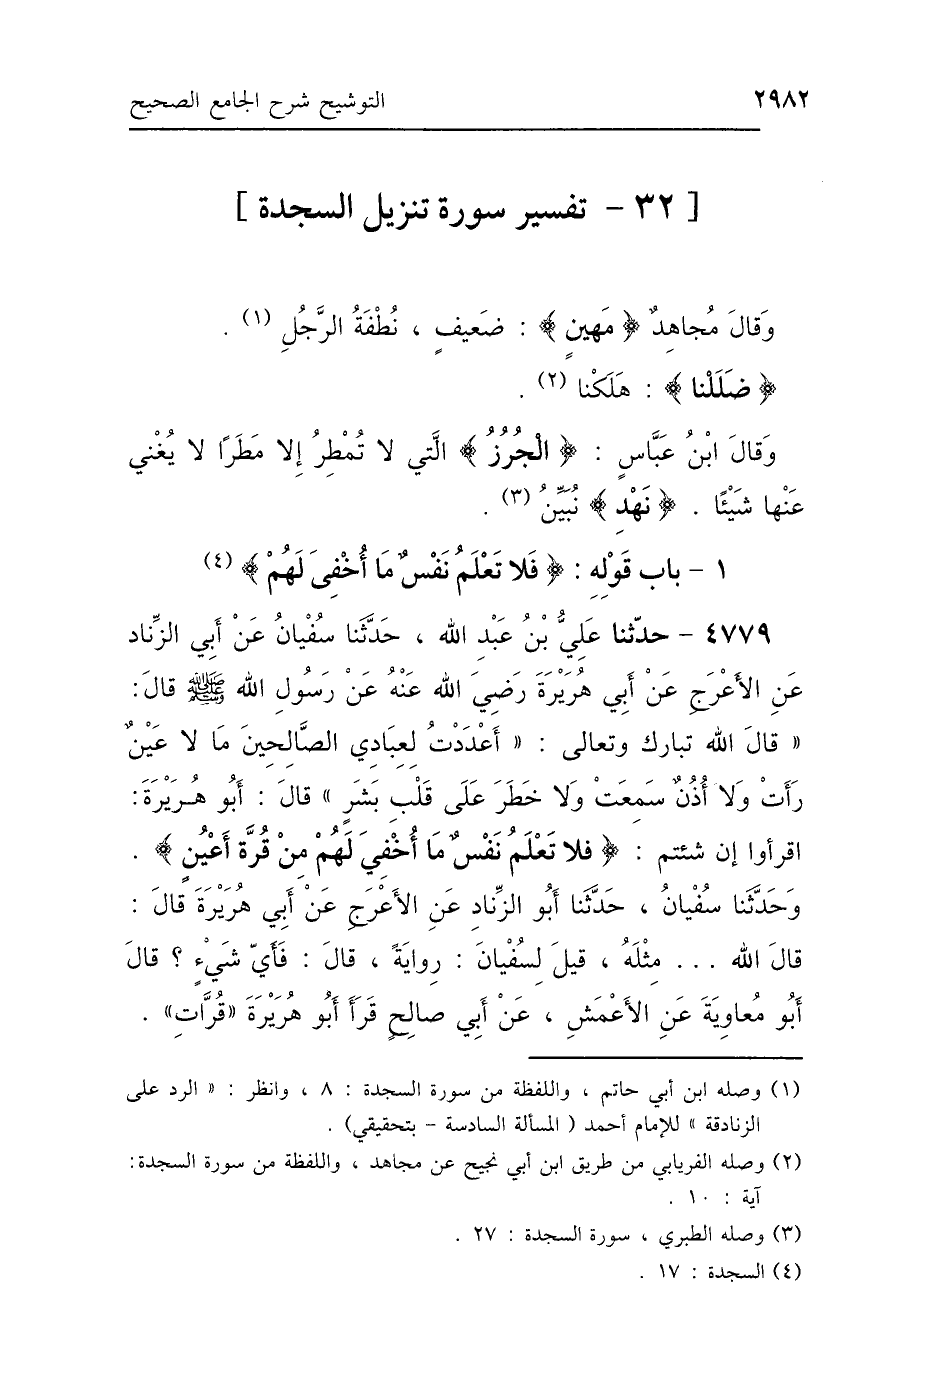 ٢٩٨٢ التوشيح شرح الجامع الصحيح
[ ٣٢ – تفسير سورة تنزيل السجدة ]
وَقالَ مُجاهِدٌ ﴿ مَهينٍ ﴾ : ضَعيفٍ ، نُطْفَةُ الرَّجُلِ (١) .
﴿ ضَلَلْنا ﴾ : هَلَكْنا (٢) .
وَقالَ ابْنُ عَبَّاسٍ : ﴿ الْجُرُزُ ﴾ الَّتي لا تُمْطِرُ إلا مَطَرًا لا يُغْني
عَنْها شَيْئًا . ﴿ نَهْدِ ﴾ نُبَيِّنُ (٣) .
١ – باب قَوْلِهِ : ﴿ فَلا تَعْلَمُ نَفْسٌ مَا أُخْفِيَ لَهُمْ ﴾ (٤)
٤٧٧٩ – حدّثنا عَلِيُّ بْنُ عَبْدِ الله ، حَدَّثَنا سُفْيانُ عَنْ أبي الزِّناد
عَنِ الأَعْرَجِ عَنْ أبي هُرَيْرَةَ رَضِيَ الله عَنْهُ عَنْ رَسُولِ الله ﷺ قالَ:
« قالَ الله تبارك وتعالى : « أَعْدَدْتُ لِعِبادِي الصَّالِحينَ مَا لا عَيْنٌ
رَأَتْ وَلا أُذُنٌ سَمِعَتْ وَلا خطَرَ عَلَى قَلْبِ بَشَرٍ » قالَ : أَبُو هُرَيْرَةَ:
اقرأوا إن شئتم : ﴿ فلا تَعْلَمُ نَفْسٌ مَا أُخْفِيَ لَهُمْ مِنْ قُرَّةِ أَعْيُنٍ ﴾ .
وَحَدَّثَنا سُفْيانُ ، حَدَّثَنا أَبُو الزِّناد عَنِ الأَعْرَجِ عَنْ أبي هُرَيْرَةَ قالَ :
قالَ الله ... مِثْلَهُ ، قيلَ لِسُفْيانَ : رِوايَةً ، قالَ : فَأَيّ شَيْءٍ ؟ قالَ
أَبُو مُعاوِيَةَ عَنِ الأَعْمَشِ ، عَنْ أبي صالِحٍ قَرَأَ أَبُو هُرَيْرَةَ «قُرَّاتِ» .
(١) وصله ابن أبي حاتم ، واللفظة من سورة السجدة : ٨ ، وانظر : « الرد على
الزنادقة » للإمام أحمد ( المسألة السادسة – بتحقيقي) .
(٢) وصله الفريابي من طريق ابن أبي نجيح عن مجاهد ، واللفظة من سورة السجدة:
آية : ١٠ .
(٣) وصله الطبري ، سورة السجدة : ٢٧ .
(٤) السجدة : ١٧ .